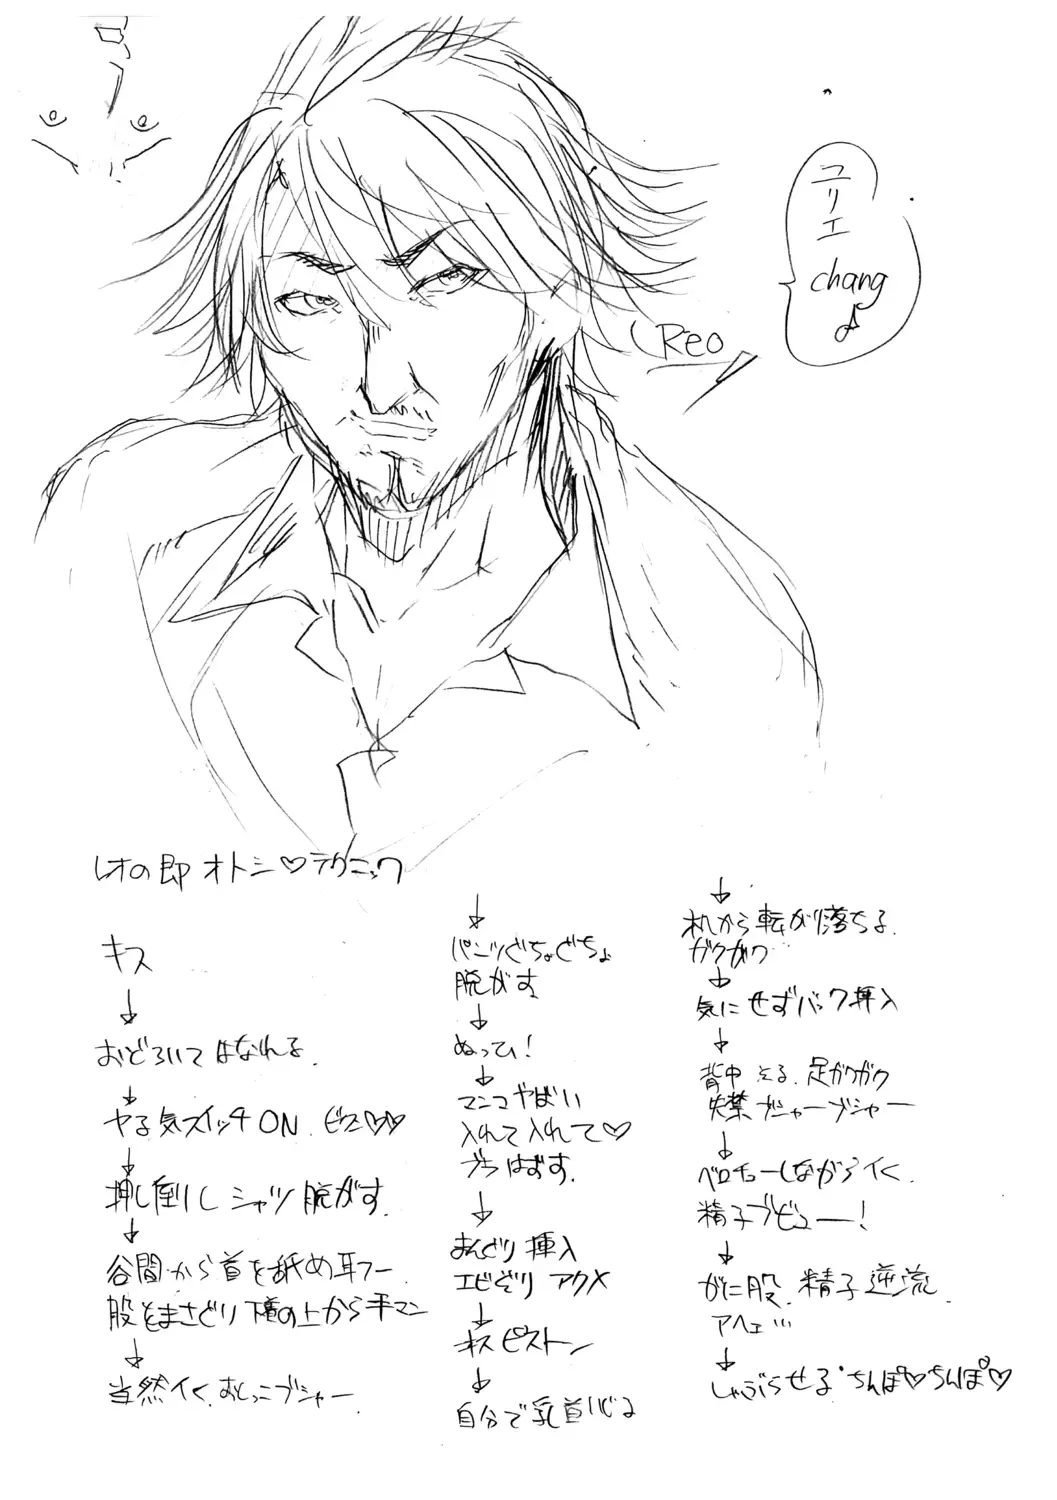 ユリエ
chang
Reo
レオの即オトシ♡テクニック
キス
↓
おどろいてはなれる.
↓
ヤる気スイッチON.
↓
押し倒しシャツ脱がす.
↓
谷間から首を舐め耳フー
股をまさぐり の上から手マン
↓
当然イく.おしっこブシャー.
↓
パンツぐちょぐちょ
脱がす
↓
ぬっひ!
↓
マンコやばい
入れて入れて♡
ブラはずす.
↓
まんぐり挿入
エビぞり アクメ
↓
ピストン
↓
自分で乳首いじる
↓
机から転がり落ちる.
ガクガク
↓
気にせずバック挿入
↓
背中そる.足ガクガク
失禁ブシャーブシャー
↓
ベロチューしながらイく.
精子ブビュー!
↓
がに股.精子逆流.
アヘェ…
↓
しゃぶらせる・ちんぽ♡ちんぽ♡